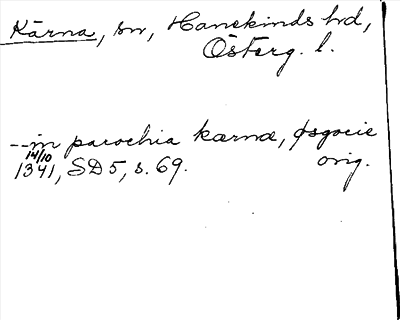 Kärna, sn, Hanekinds hd,
Österg. l.
--in parochia kærnæ, øsgocie
14/10
1341, SD 5, s. 69. orig.